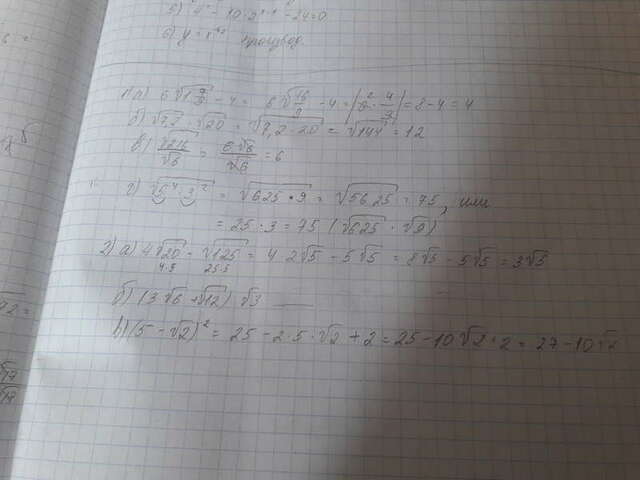 5) 4ˣ - 10·2ˣ⁻¹ - 24 = 0
6) y = x производ
1) а) 6√1 7/9 - 4 = 6√16/9 - 4 = 8 - 4 = 4
б) √7,2 · √20 = √7,2·20 = √144 = 12
в) √216/√6 = 6·√6/√6 = 6
г) √5⁴·3² = √625·9 = √5625 = 75, или
= 25·3 = 75 (√625 · √9)
2) а) 4√20 - √125 = 4·2√5 - 5√5 = 8√5 - 5√5 = 3√5
4·5 25·5
б) (3√6 + √12) · √3
в) (5 - √2)² = 25 - 2·5·√2 + 2 = 25 - 10√2 + 2 = 27 - 10√2